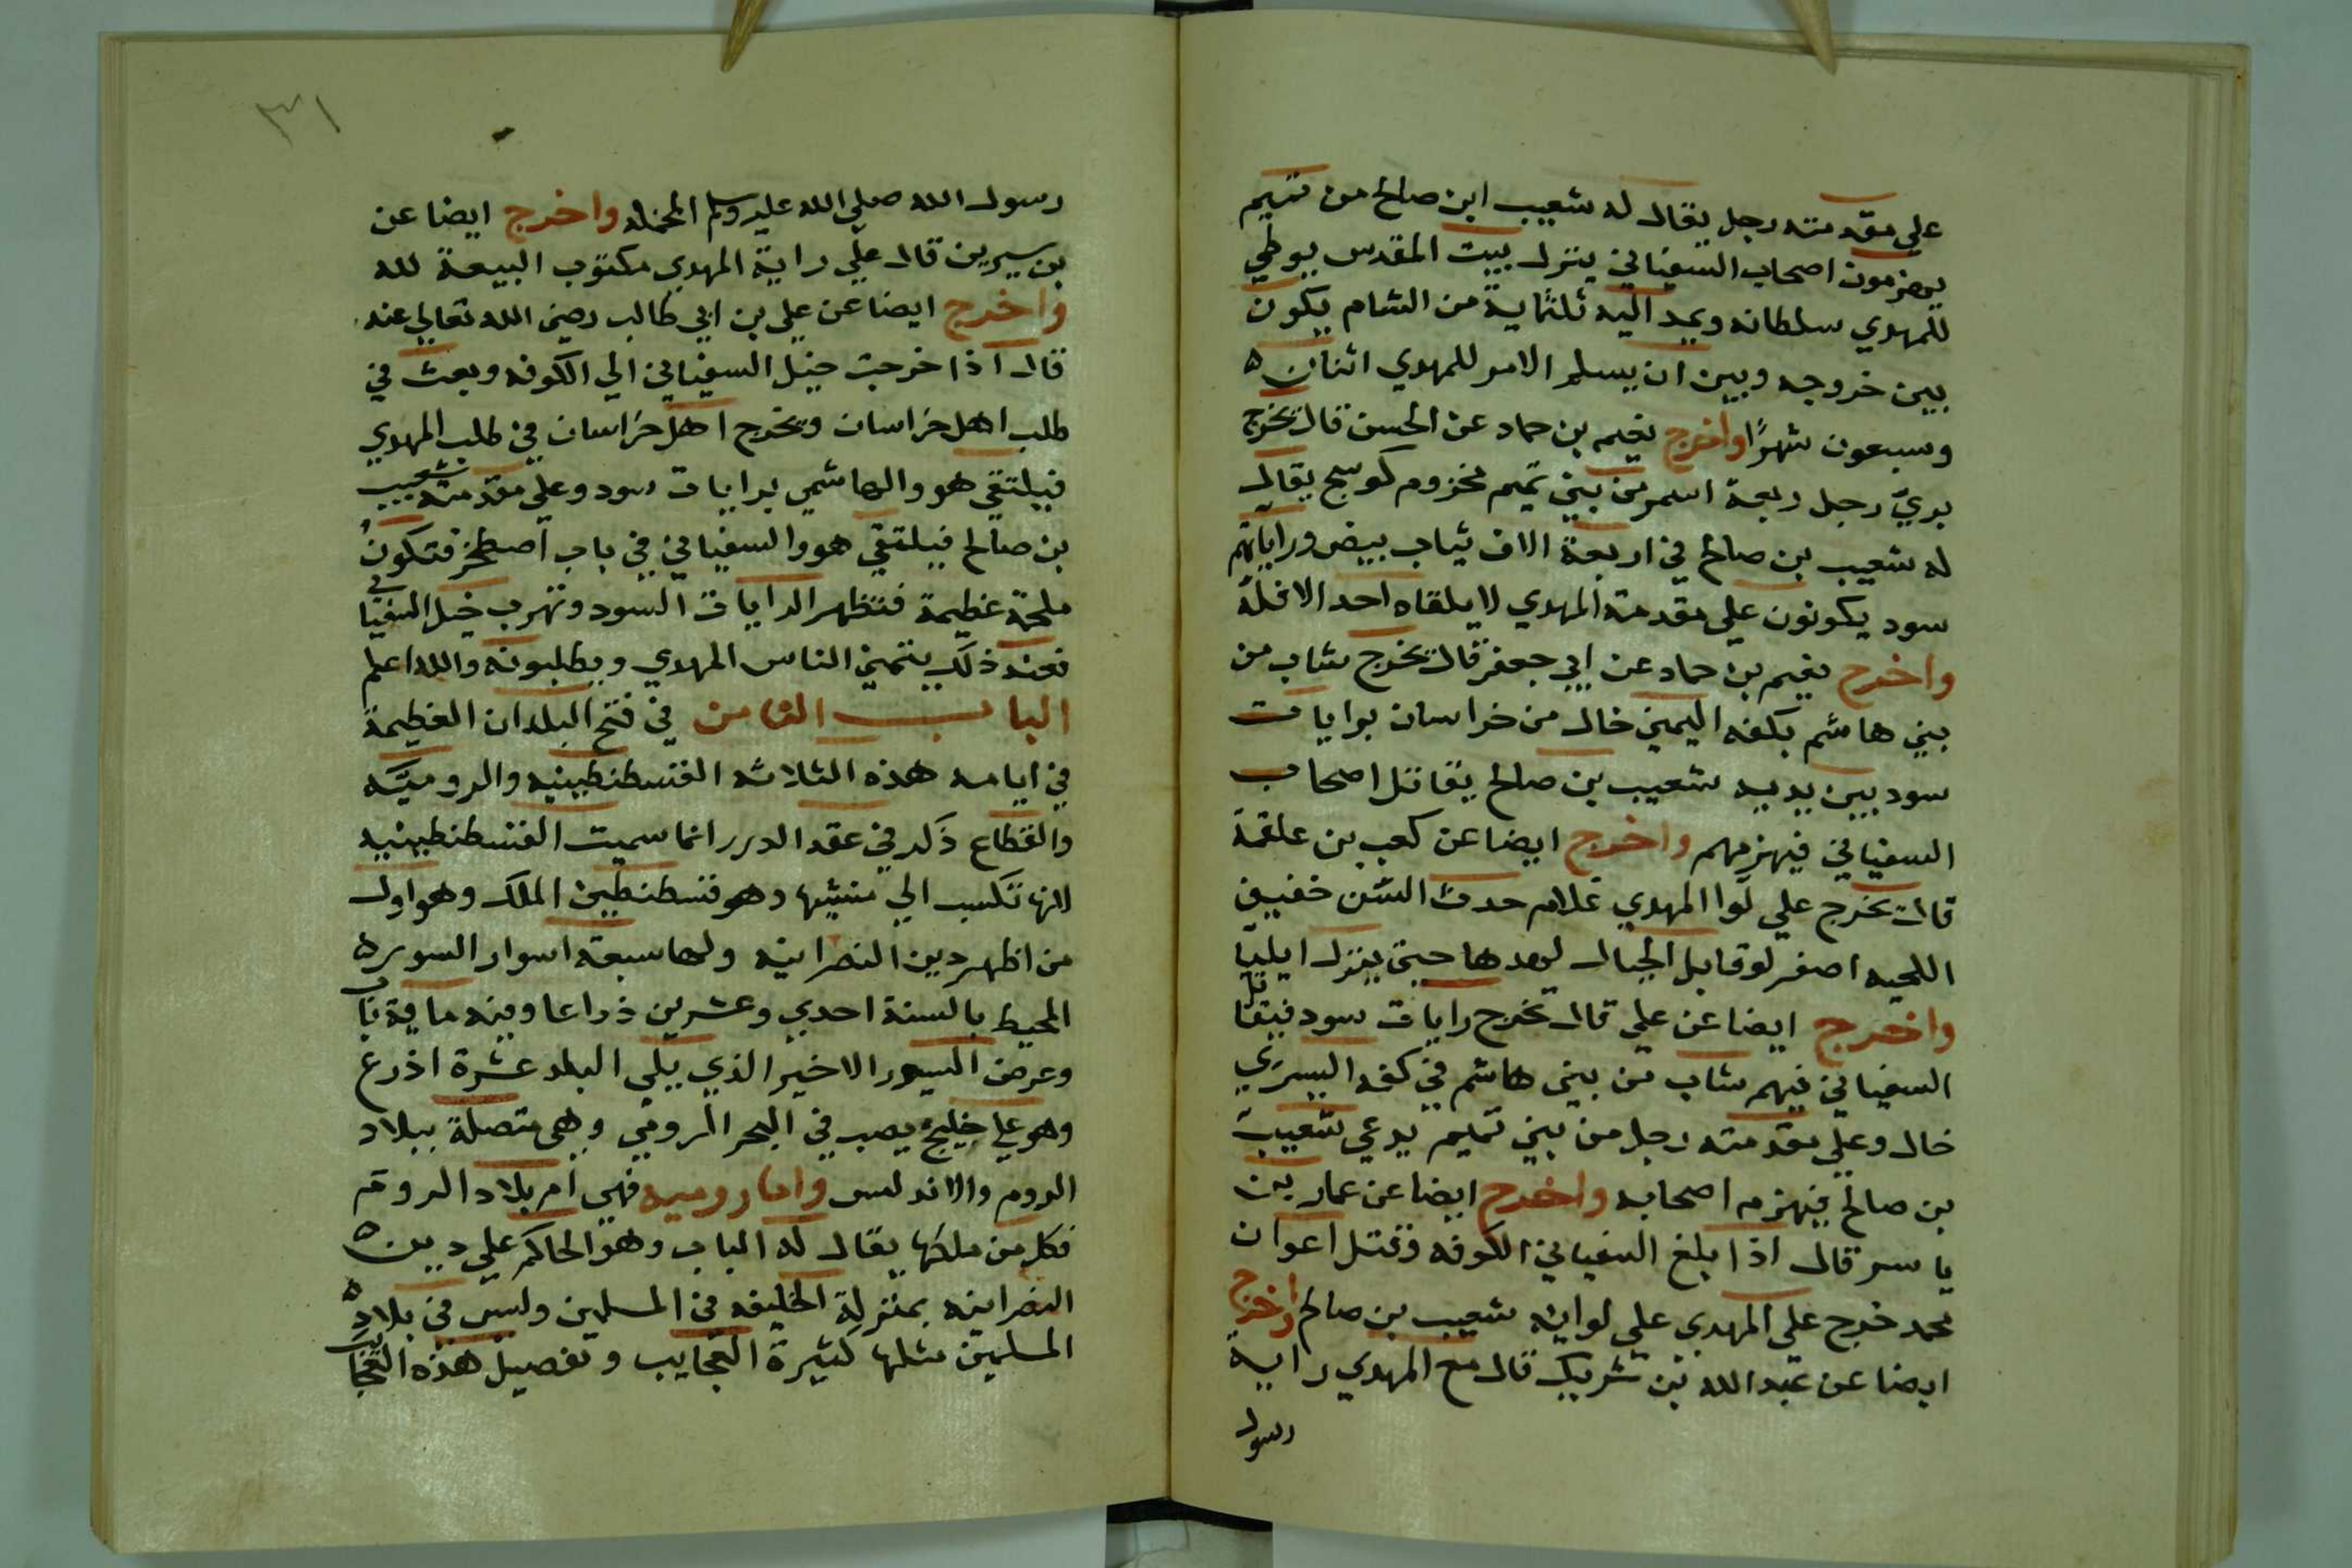 على مقدمته رجل يقال له شعيب ابن صالح من تميم
يهزمون اصحاب السفياني ينزل بيت المقدس يوطي
للمهدي سلطانه ويمد اليه ثلثماية من الشام يكون
بين خروجه وبين ان يسلم الامر للمهدي اثنان
وسبعون شهرًا واخرج نعيم بن حماد عن الحسن قال يخرج
بريّ رجل ربعة اسمر من بني تميم مخزوم كوسج يقال
له شعيب بن صالح في اربعة الاف ثياب بيض وراياتهم
سود يكونون على مقدمة المهدي لا يلقاه احد الا فله
واخرج نعيم بن حماد عن ابي جعفر قال يخرج شاب من
بني هاشم بكفه اليمني خال من خراسان برايات
سود بين يديه شعيب بن صالح يقاتل اصحاب
السفياني فيهزمهم واخرج ايضا عن كعب بن علقمة
قال يخرج علي لوا المهدي غلام حدث السن خفيف
اللحيه اصفر لو قابل الجبال لهدها حتي ينزل ايليا
واخرج ايضا عن علي قال تخرج رايات سود فيقاتل
السفياني فيهم شاب من بني هاشم في كفه اليسري
خال وعلي مقدمته رجل من بني تميم يدعي شعيب
بن صالح فيهزم اصحابه واخرج ايضا عن عمار بن
ياسر قال اذا بلغ السفياني الكوفه وقتل اعوان
محمد خرج على المهدي على لوايه شعيب بن صالح واخرج
ايضا عن عبد الله بن شريك قال مع المهدي راية
رسول
٣١
رسول الله صلي الله عليه وسلم المخمله واخرج ايضا عن
بن سيرين قال علي راية المهدي مكتوب البيعة لله
واخرج ايضا عن علي بن ابي طالب رضي الله تعالي عنه
قال اذا خرجت خيل السفياني الي الكوفه وبعث في
طلب اهل خراسان ويخرج اهل خراسان في طلب المهدي
فيلتقي هو والهاشمي برايات سود وعلي مقدمته شعيب
بن صالح فيلتقي هو والسفياني في باب اصطخر فتكون
ملحمة عظيمة فتظهر الرايات السود وتهرب خيل السفياني
فعند ذلك يتمني الناس المهدي ويطلبونه والله اعلم
الباب الثامن في فتح البلدان العظيمة
في ايامه هذه الثلاثه القسطنطينيه والروميّه
والقطاع ذكر في عقد الدرر انما سميت القسطنطينيه
لانها تكسب الي منشيها وهو قسطنطين الملك وهو اول
من اظهر دين النصرانيه ولها سبعة اسوار السوره
المحيط بالسنة احدي وعشرين ذراعا وفيه ماية باب
وعرض السور الاخير الذي يلي البلد عشرة اذرع
وهو علي خليج يصب في البحر الرومي وهي متصلة ببلاد
الروم والاندلس واما روميه فهي ام بلاد الروم
فكل من ملكها يقال له الباب وهو الحاكم علي دين
النصرانيه بمنزلة الخليفه في المسلمين وليس في بلاد
المسلمين مثلها كثيرة العجايب وتفصيل هذه العجايب